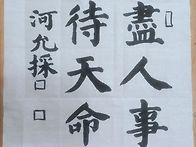 盡人事
待天命
河允採